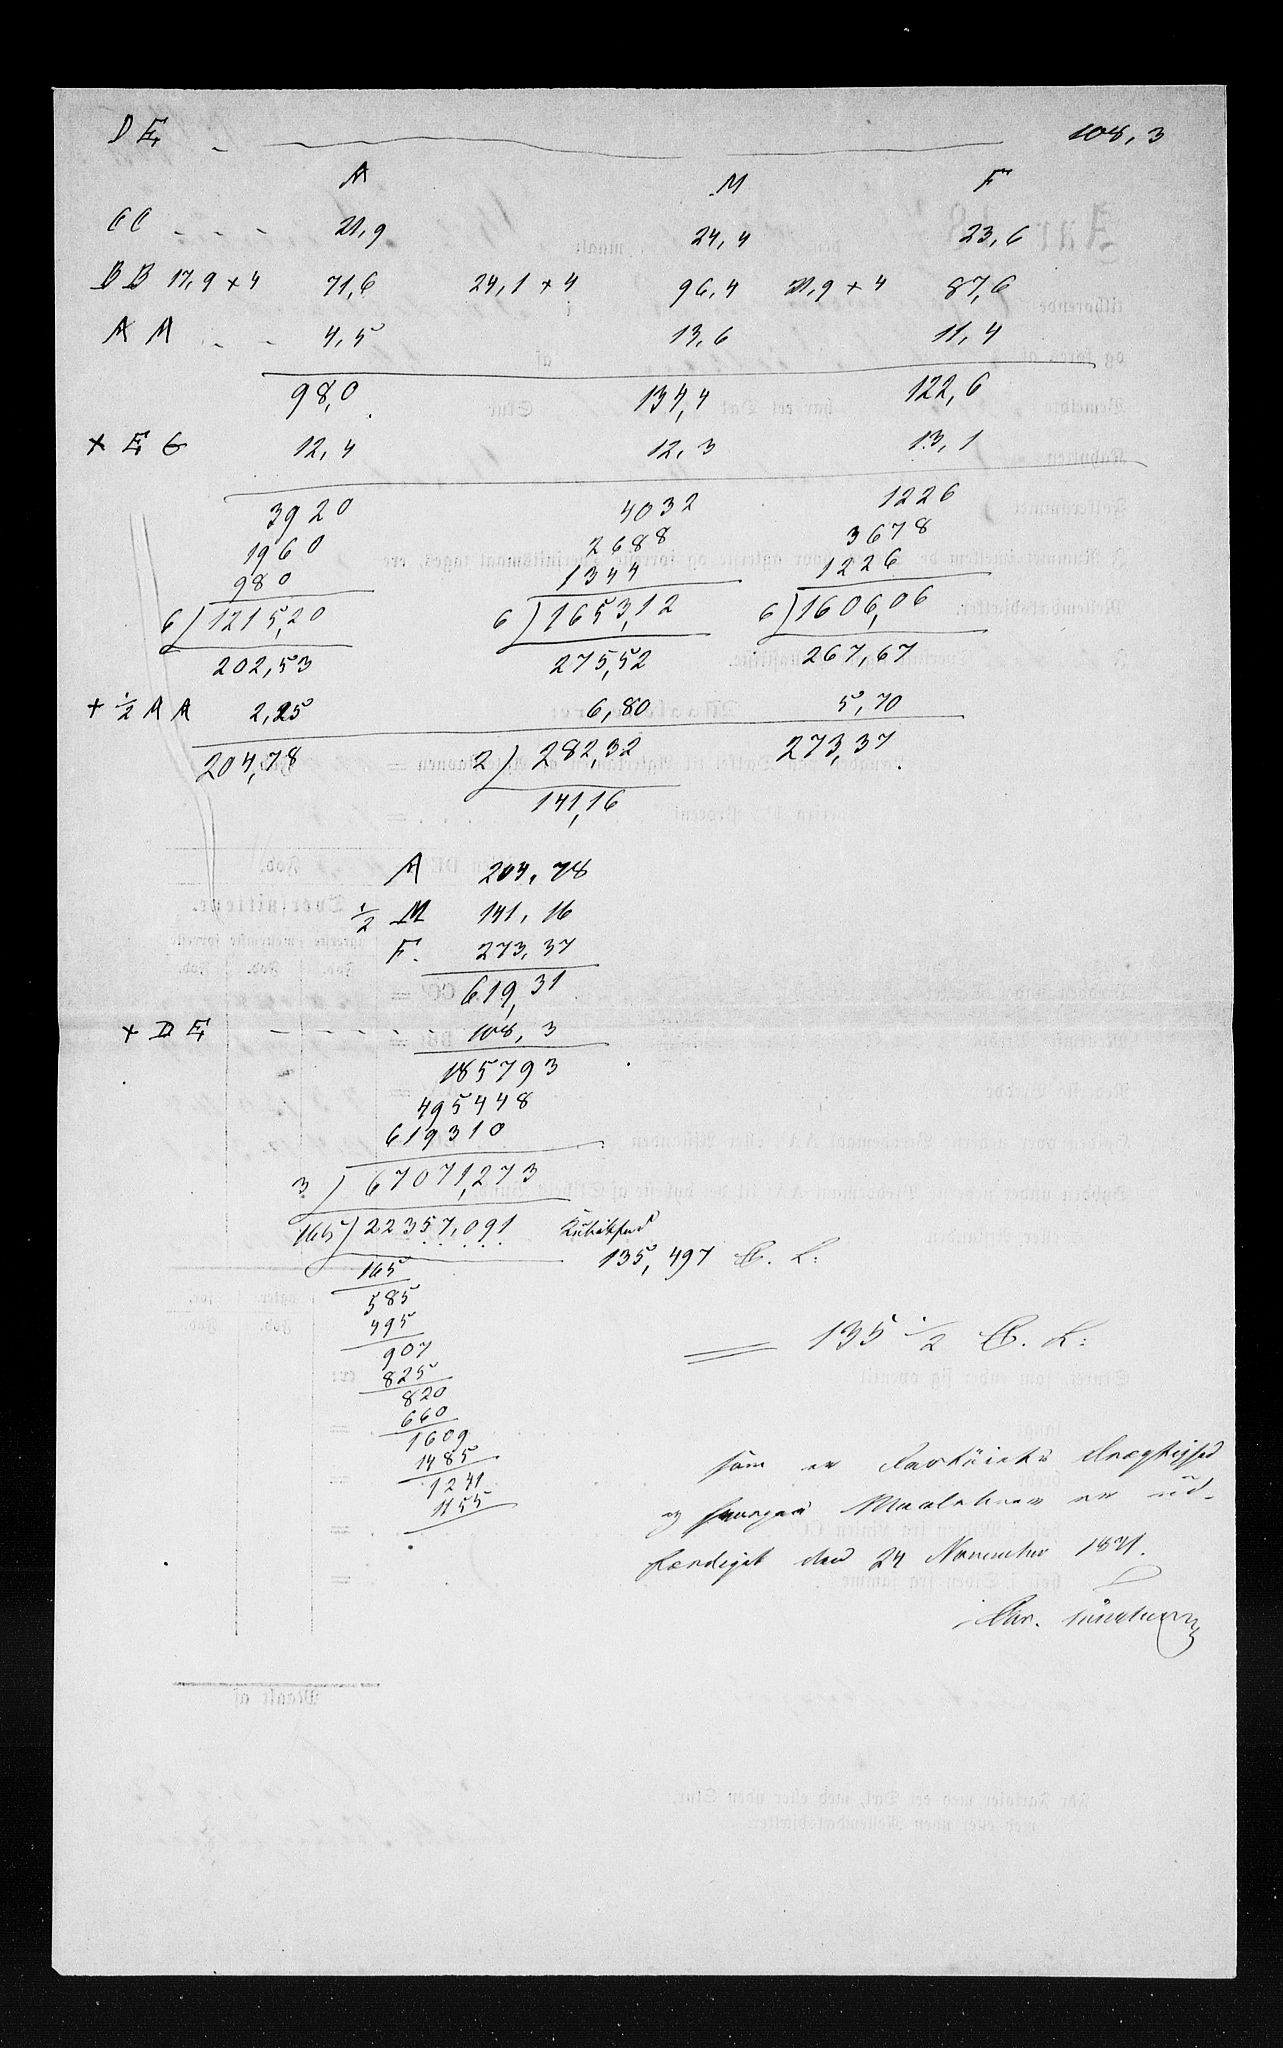 DE 108,3
A M F
CC - - - 21,9 24,4 23,6
BB 17,9 + 4 71,6 24,1 + 4 96,4 21,9 + 4 87,6
AA - - - 4,5 13,6 11,4
98,0 134,4 122,6
+ EG 12,4 12,3 13,1
3920 4032 1226
1960 2688 3678
980 1344 1226
6) 1215,20 6) 1653,12 6) 1606,06
202,53 275,52 267,67
+ 1/2 AA 2,25 6,80 5,70
204,78 2) 282,32 273,37
141,16
A 204,78
1/2 M 141,16
F. 273,37
619,31
+ DE - - - - - 108,3
185793
495448
619310
3) 67071,273
165) 22357,091 Kubikfod
135,497 C. L:
165
585
495
907
825
820
660
1609
1485
1241
1155
= 135 1/2 C. L:
som er Fartöiets Drægtighed
og Maalebrev er ud-
færdiget den 24 November 1871.
Chr.